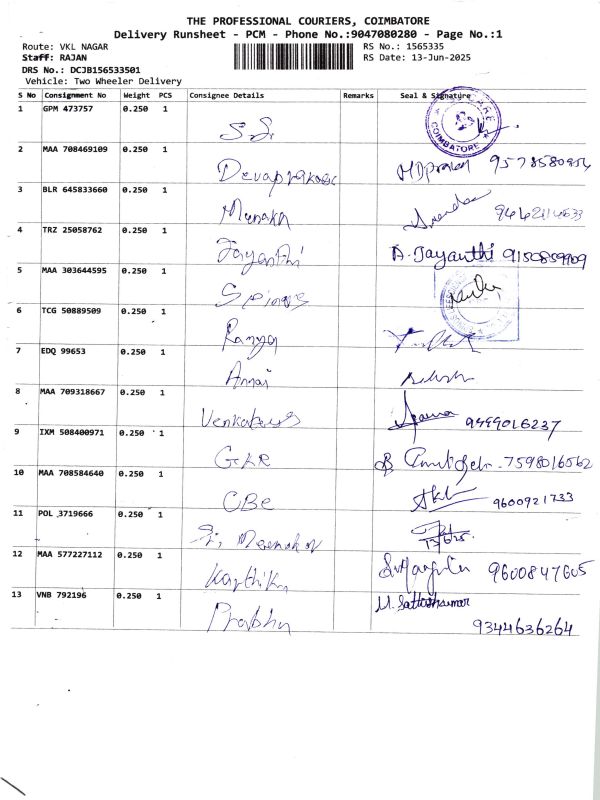 THE PROFESSIONAL COURIERS, COIMBATORE
Delivery Runsheet - PCM - Phone No.:9047080280 - Page No.:1
Route: VKL NAGAR RS No.: 1565335
Staff: RAJAN RS Date: 13-Jun-2025
DRS No.: DCJB156533501
Vehicle: Two Wheeler Delivery
S No Consignment No Weight PCS Consignee Details Remarks Seal & Signature
1 GPM 473757 0.250 1
COIMBATORE
2 MAA 708469109 0.250 1 Devaprakash
3 BLR 645833660 0.250 1 Menaka
4 TRZ 25058762 0.250 1 Jayanthi A. Jayanthi 9150859909
5 MAA 303644595 0.250 1
6 TCG 50889509 0.250 1 Ramya
7 EDQ 99653 0.250 1 Annai
8 MAA 709318667 0.250 1 9499016237
9 IXM 508400971 0.250 1 GKR 7598016562
10 MAA 708584640 0.250 1 CBE 9600921733
11 POL 3719666 0.250 1
12 MAA 577227112 0.250 1 Karthika 9600847605
13 VNB 792196 0.250 1 Prabhu M. Sathishkumar
9344636264